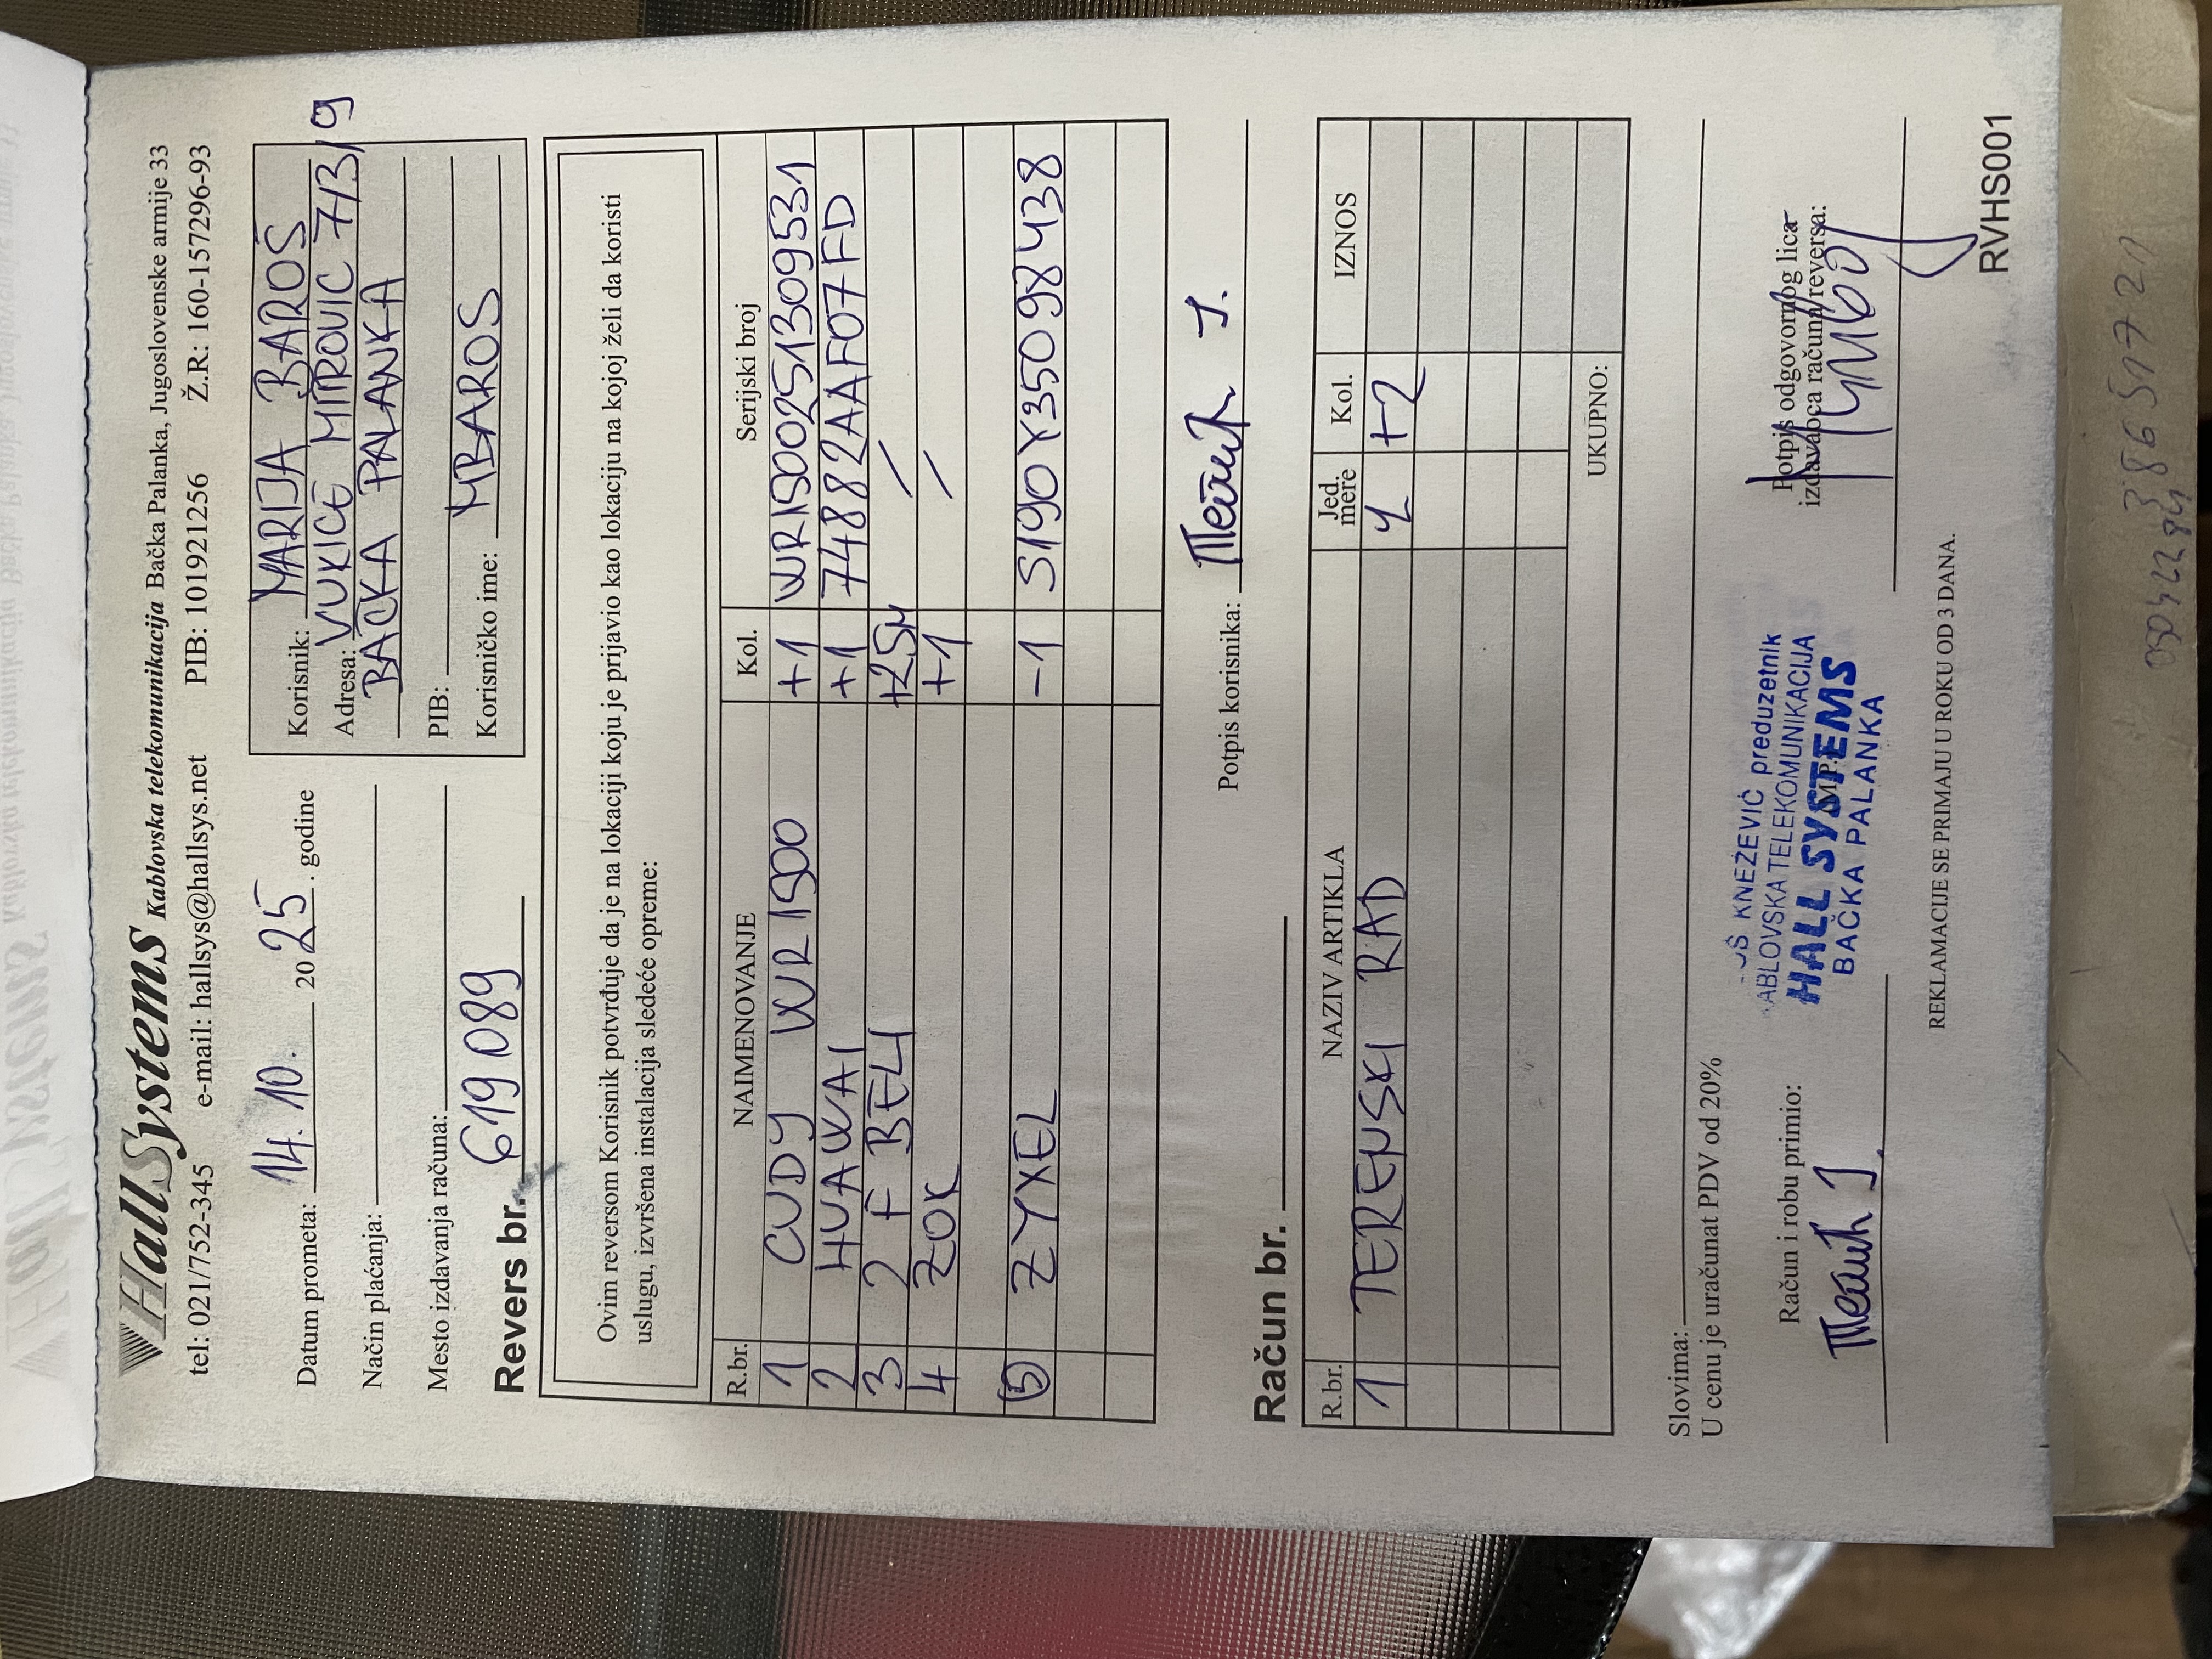 HallSystems Kablovska telekomunikacija Bačka Palanka, Jugoslovenske armije 33
tel: 021/752-345 e-mail: hallsys@hallsys.net PIB: 101921256 Ž.R: 160-157296-93
Datum prometa: 14. 10. 2025. godine
Način plaćanja:
Mesto izdavanja računa:
Revers br. 619 089
Korisnik: MARIJA BAROŠ
Adresa: VUKICE MITROVIC 7/3/9
BAČKA PALANKA
PIB:
Korisničko ime: MBAROS
Ovim reversom Korisnik potvrđuje da je na lokaciji koju je prijavio kao lokaciju na kojoj želi da koristi
uslugu, izvršena instalacija sledeće opreme:
R.br. NAIMENOVANJE Kol. Serijski broj
1 CUDY WR 1500 +1 WR1500251309531
2 HUAWAI +1 74882AAF07FD
3 2 F BELI +25M /
4 ZOK +1 /
5 ZYXEL -1 S190Y35098438
Potpis korisnika:
Račun br.
R.br. NAZIV ARTIKLA Jed. mere Kol. IZNOS
1 TERENSKI RAD +2
UKUPNO:
Slovima:
U cenu je uračunat PDV od 20%
Račun i robu primio:
M.P.
Potpis odgovornog lica
izdavaoca računa/reversa:
KNEŽEVIĆ preduzetnik
ABLOVSKA TELEKOMUNIKACIJA
HALL SYSTEMS
BAČKA PALANKA
REKLAMACIJE SE PRIMAJU U ROKU OD 3 DANA.
RVHS001